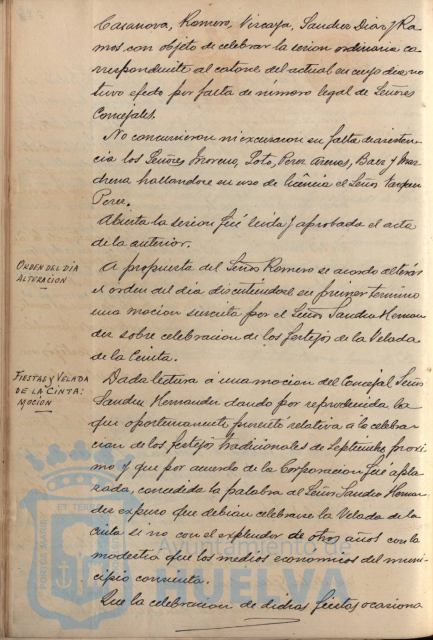 Casanova, Romero, Vizcaya, Sanchez Diaz y Ra-
mos con objeto de celebrar la sesion ordinaria co-
rrespondiente al catorce del actual en cuyo dia no
tuvo efecto por falta de número legal de Señores
Concejales.
No concurrieron ni excusaron su falta de asisten-
cia los Señores Moreno, Soto, Perez Arenas, Baez y Mar-
chena hallandose en uso de licencia el Señor
Perez.
Abierta la sesion fué leida y aprobada el acta
de la anterior.
ORDEN DEL DIA
ALTERACIÓN
A propuesta del Señor Romero se acordo alterar
el orden del dia discutiendose en primer termino
una mocion suscrita por el Señor Sanchez Hernan-
dez sobre celebracion de los festejos de la Velada
de la Cinta.
FIESTAS Y VELADA
DE LA CINTA:
MOCION
Dada lectura á una mocion del Concejal Señor
Sanchez Hernandez dando por reproducida la
que oportunamente presentó relativa a la celebra-
cion de los festejos tradicionales de Septiembre proxi-
mo y que por acuerdo de la Corporacion fué apla-
zada, concedida la palabra al Señor Sanchez Hernan-
dez expuso que debian celebrarse la Velada de la
Cinta si no con el explendor de otros años con la
modestia que los medios economicos del muni-
cipio consienta.
Que la celebracion de dichas fiestas ocasiona
PORTUS MARIS
ET TERRAE
Ayuntamiento de
HUELVA